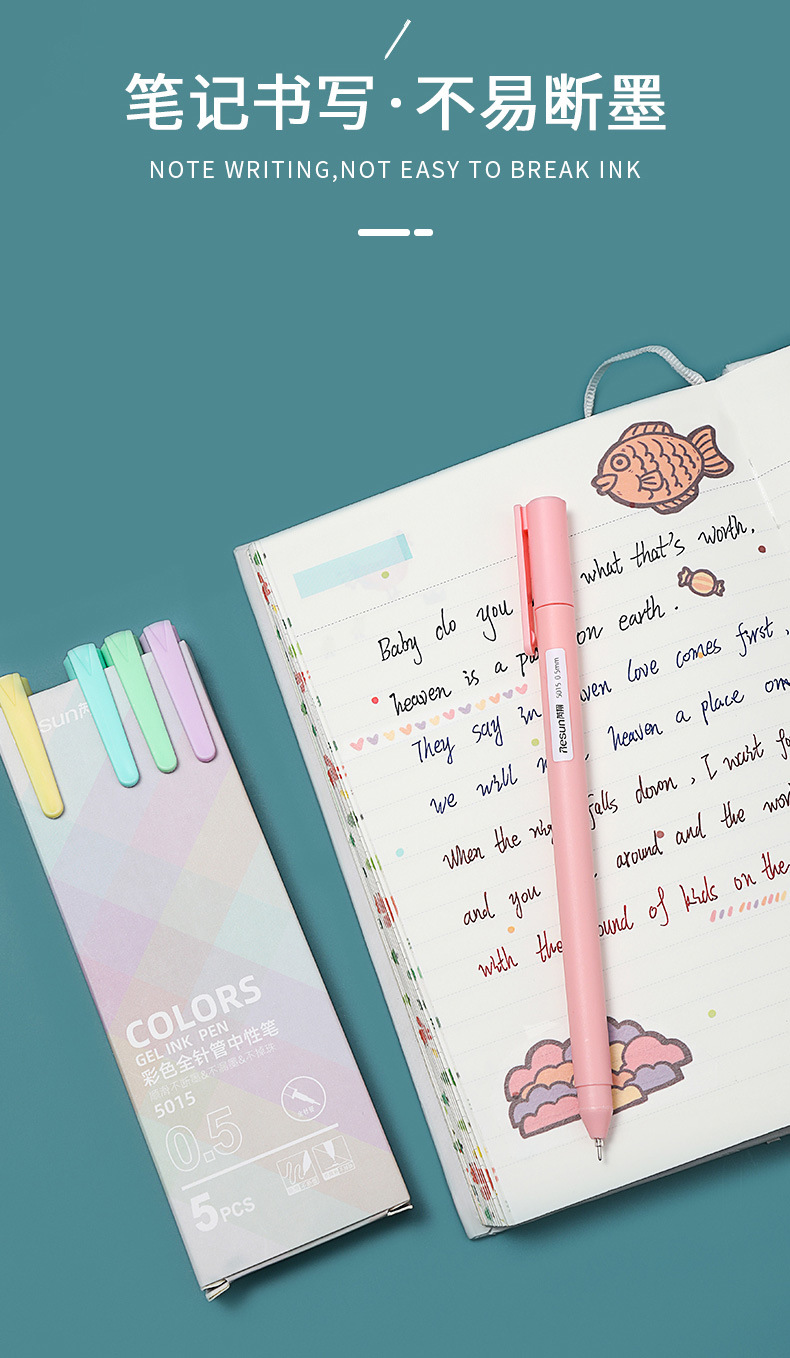 笔记书写·不易断墨
NOTE WRITING,NOT EASY TO BREAK INK
Baby do you what that's worth.
heaven is a on earth.
They say in love comes first,
we will heaven a place
When the falls down, I want
and you around and the
with the sound of kids on the
Resun 5015 0.5mm
COLORS
GEL INK PEN
彩色全针管中性笔
5015
0.5
5PCS